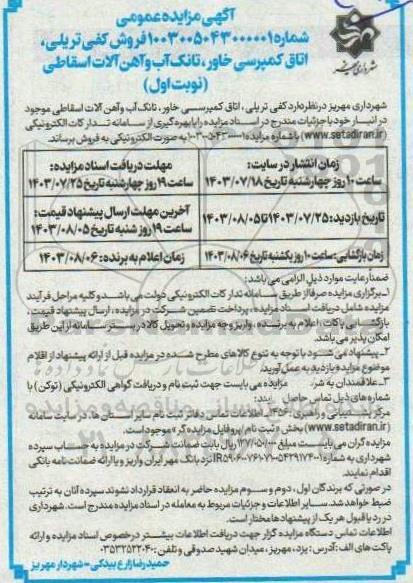 آگهی مزایده عمومی
شماره ۱۰۰۳۰۰۵۰۴۳۰۰۰۰۰۱ فروش کفی تریلی،
اتاق کمپرسی خاور، تانک آب و آهن آلات اسقاطی
(نوبت اول)
شهرداری مهریز
شهرداری مهریز در نظر دارد کفی تریلی، اتاق کمپرسی خاور، تانک آب و آهن آلات اسقاطی موجود
در انبار خود با جزئیات مندرج در اسناد مزایده را با بهره گیری از سامانه تدارکات الکترونیکی
(www.setadiran.ir) با شماره مزایده ۱۰۰۳۰۰۵۰۴۳۰۰۰۰۰۱ به صورت الکترونیکی به فروش برساند.
زمان انتشار در سایت:
ساعت ۱۰ روز چهارشنبه تاریخ ۱۴۰۳/۰۷/۱۸
مهلت دریافت اسناد مزایده:
ساعت ۱۹ روز چهارشنبه تاریخ ۱۴۰۳/۰۷/۲۵
تاریخ بازدید: ۱۴۰۳/۰۷/۲۵ تا ۱۴۰۳/۰۸/۰۵
آخرین مهلت ارسال پیشنهاد قیمت:
ساعت ۱۹ روز شنبه تاریخ ۱۴۰۳/۰۸/۰۵
زمان بازگشایی: ساعت ۱۰ روز یکشنبه تاریخ ۱۴۰۳/۰۸/۰۶
زمان اعلام به برنده: ۱۴۰۳/۰۸/۰۶
ضمنا رعایت موارد ذیل الزامی می باشد:
۱ـ برگزاری مزایده صرفا از طریق سامانه تدارکات الکترونیکی دولت می باشد و کلیه مراحل فرآیند
مزایده شامل دریافت اسناد مزایده، پرداخت تضمین شرکت در مزایده، ارسال پیشنهاد قیمت،
بازگشایی پاکات، اعلام به برنده، واریز وجه مزایده و تحویل کالا در بستر سامانه از این طریق
امکان پذیر می باشد.
۲ـ پیشنهاد می شود با توجه به تنوع کالاهای مطرح شده در مزایده قبل از ارائه پیشنهاد از اقلام
موضوع مزایده بازدید به عمل آورید.
۳ـ علاقمندان به شر مزایده می بایست جهت ثبت نام و دریافت گواهی الکترونیکی (توکن) با
شماره های ذیل تماس حاصل یند:
مرکز پشتیبانی و راهبری: ۱۴۵۶ـ اطلاعات تماس دفاتر ثبت نام سایر استان ها، در سایت سامانه
(www.setadiran.ir) بخش «ثبت نام/پروفایل مزایده گر» موجود است.
مزایده گران می بایست مبلغ ۱۲۷/۰۵۰/۰۰۰ ریال بابت ضمانت شرکت در مزایده به حساب سپرده
شهرداری به شماره نزد بانک مهر ایران واریز و یا ارائه ضمانت نامه بانکی
اقدام نمایند.
در صورتی که برندگان اول، دوم و سوم مزایده حاضر به انعقاد قرارداد نشوند سپرده آنان به ترتیب
ضبط خواهد شد. سایر اطلاعات و جزئیات مربوط به معامله در اسناد مزایده مندرج است. شهرداری
در رد یا قبول هر یک از پیشنهادها مختار است.
اطلاعات تماس دستگاه مزایده گزار جهت دریافت اطلاعات بیشتر در خصوص اسناد مزایده و ارائه
پاکت های الف: آدرس: یزد، مهریز، میدان شهید صدوقی و تلفن: ۰۳۵۳۲۵۲۲۰۴۰
حمیدرضا زارع بیدکی - شهردار مهریز